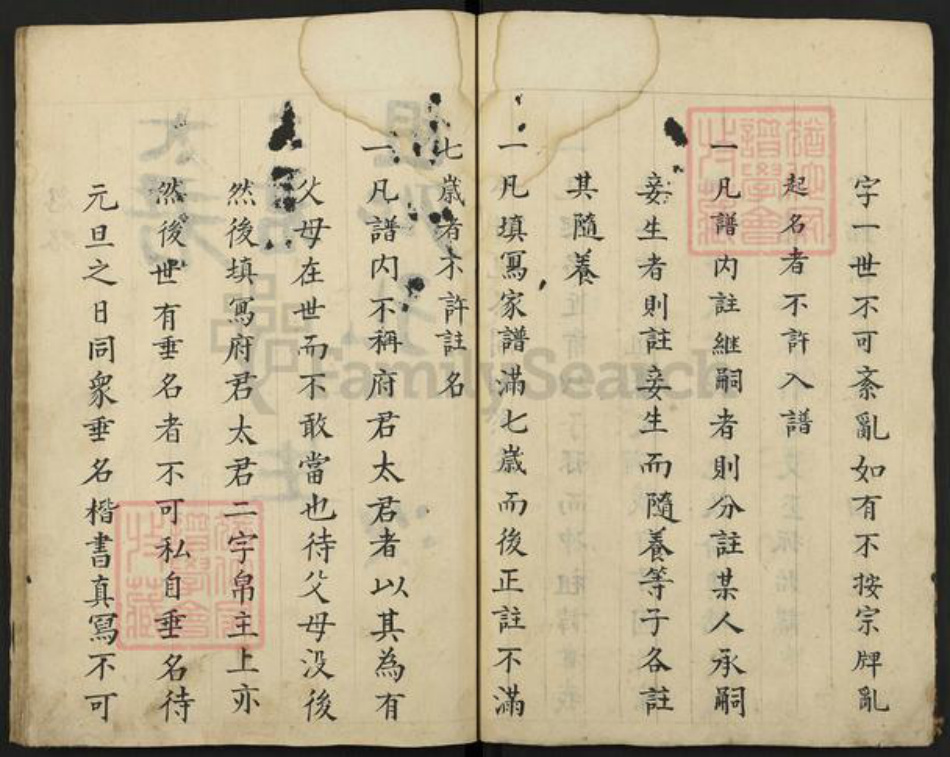 字一世不可紊亂如有不按宗牌亂
起名者不許入譜
一凡譜内註継嗣者則分註某人承嗣
妾生者則註妾生而隨養等子各註
其隨養
一凡填冩家譜滿七歲而後正註不滿
七歲者不許註名
一凡譜内不稱府君太君者以其為有
父母在世而不敢當也待父母没後
然後填冩府君太君二字帛主上亦
然後世有垂名者不可私自垂名待
元旦之日同衆垂名楷書真冩不可
FamilySearch